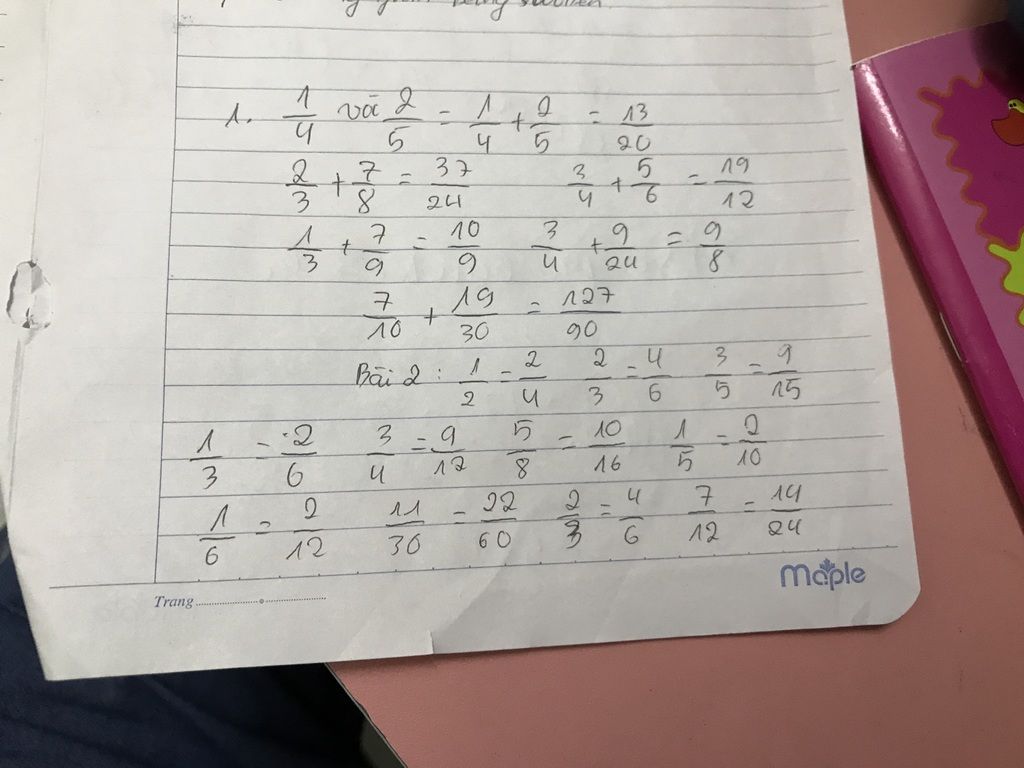 being swollen
1. 1/4 và 2/5 = 1/4 + 2/5 = 13/20
2/3 + 7/8 = 37/24 3/4 + 5/6 = 19/12
1/3 + 7/9 = 10/9 3/4 + 9/24 = 9/8
7/10 + 19/30 = 127/90
Bài 2 : 1/2 = 2/4 2/3 = 4/6 3/5 = 9/15
1/3 = 2/6 3/4 = 9/12 5/8 = 10/16 1/5 = 2/10
1/6 = 2/12 11/30 = 22/60 2/3 = 4/6 7/12 = 14/24
Maple
Trang